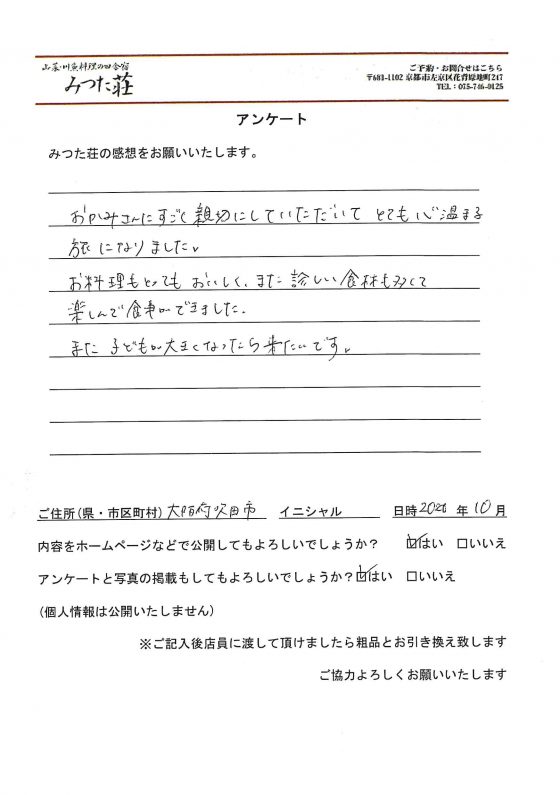 山菜・川魚料理の田舎宿
みつた荘
ご予約・お問合せはこちら
〒601-1102 京都市左京区花背原地町247
TEL：075-746-0125
アンケート
みつた荘の感想をお願いいたします。
おかみさんにすごく親切にしていただいて とても心温まる
旅になりました。
お料理もとってもおいしく、また診しい食材も多くて
楽しんで食事ができました。
また子どもが大きくなったら来たいです。
ご住所(県・市区町村) 大阪府吹田市 イニシャル 日時 2020 年 10 月
内容をホームページなどで公開してもよろしいでしょうか？ ☑はい □いいえ
アンケートと写真の掲載もしてもよろしいでしょうか？☑はい □いいえ
(個人情報は公開いたしません)
※ご記入後店員に渡して頂けましたら粗品とお引き換え致します
ご協力よろしくお願いいたします